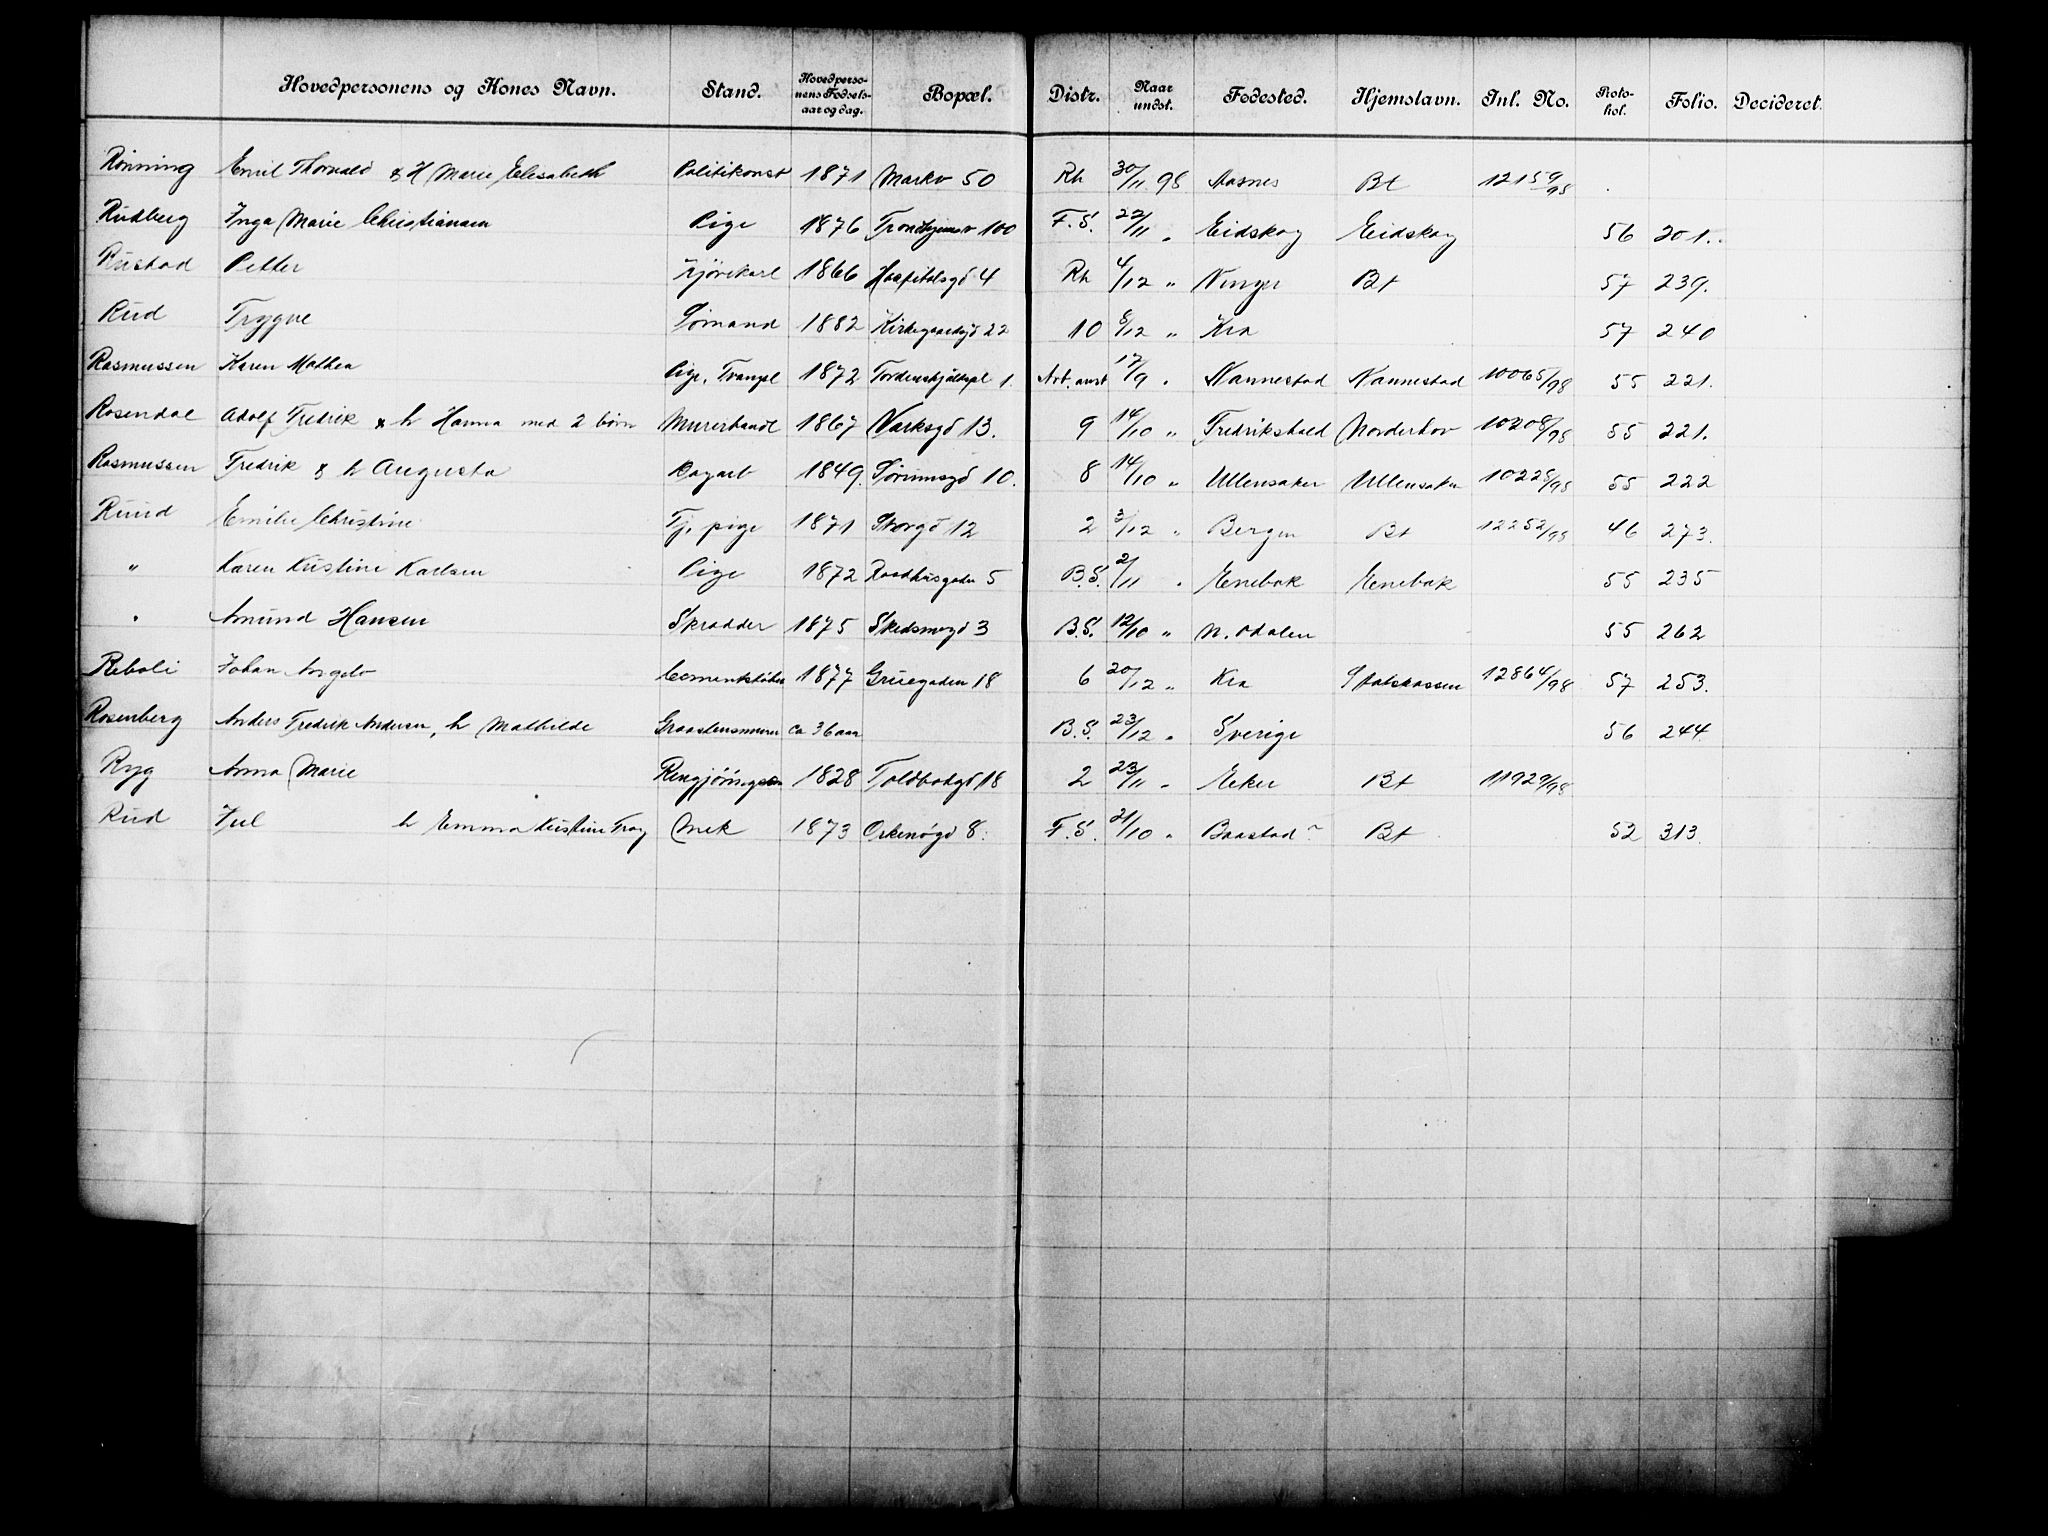 Hovedpersonens og Kones Navn. Stand. Hovedpersonens Fødselsaar og dag. Bopæl. Distr. Naar undst. Fødested. Hjemstavn. Inl. No. Protokol. Folio. Decideret.
Rønning Emil Thorvald & H Marie Elisabeth Politikonst 1871 Markv 50 Rh 30/11 98 Aasnes Bt 12159/98
Rudberg Inga Marie Christiansen Pige 1876 Trondhjemsv 100 F.S. 22/11 " Eidskog Eidskog 56 201.
Rustad Petter Kjørekarl 1866 Hospitalsgd 4 Rh 4/12 " Vinger Bt 57 239.
Rud Trygve Sømand 1882 Kirkegaardsgd 22 10 8/12 " Kra 57 240
Rasmussen Karen Mathea Pige, Tvangsl 1872 Tordenskjoldspl 1. Arb. anst 17/9 " Nannestad Nannestad 10065/98 55 221.
Rosendal Adolf Fredrik & h Hanna med 2 børn Murerhandl 1867 Verksgd 13. 9 14/10 " Fredrikshald Norderhov 10208/98 55 221.
Rasmussen Fredrik & h Augusta Dagarb 1849. Sørumsgd 10. 8 14/10 " Ullensaker Ullensaker 10228/98 55 222
Ruud Emilie Christine Tj. pige 1871 Storgd 12 2 3/12 " Bergen Bt 12252/98 46 273.
" Karen Kristine Karlsen Pige 1872 Raadhusgaden 5 B.S. 2/11 " Enebak Enebak 55 235
" Amund Hansen Skrædder 1875 Skedsmogd 3 B.S. 12/10 " N. Odalen 55 262
Reboli Johan Angelo Cementstøber 1877 Gruegaden 18 6 20/12 " Kra Statskassen 12864/98 57 253.
Rosenberg Anders Fredrik Andersen, h Mathilde Graastensmurer ca 36 aar B.S. 23/12 " Sverige 56 244
Ryg Anna Marie Rengjøringskon 1828 Toldbodgd 18 2 23/11 " Eeker Bt 11929/98
Rud Jul h Emma Kristine Mek 1873 Orknøgd 8. F.S. 21/10 " Baastad Bt 52 313.